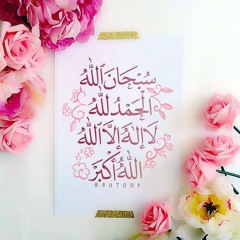 سُبْحَانَ اللَّه
الْحَمْدُ لِلَّه
لَا إِلٰهَ إِلَّا اللَّه
اللَّهُ أَكْبَر
@RUTOOF